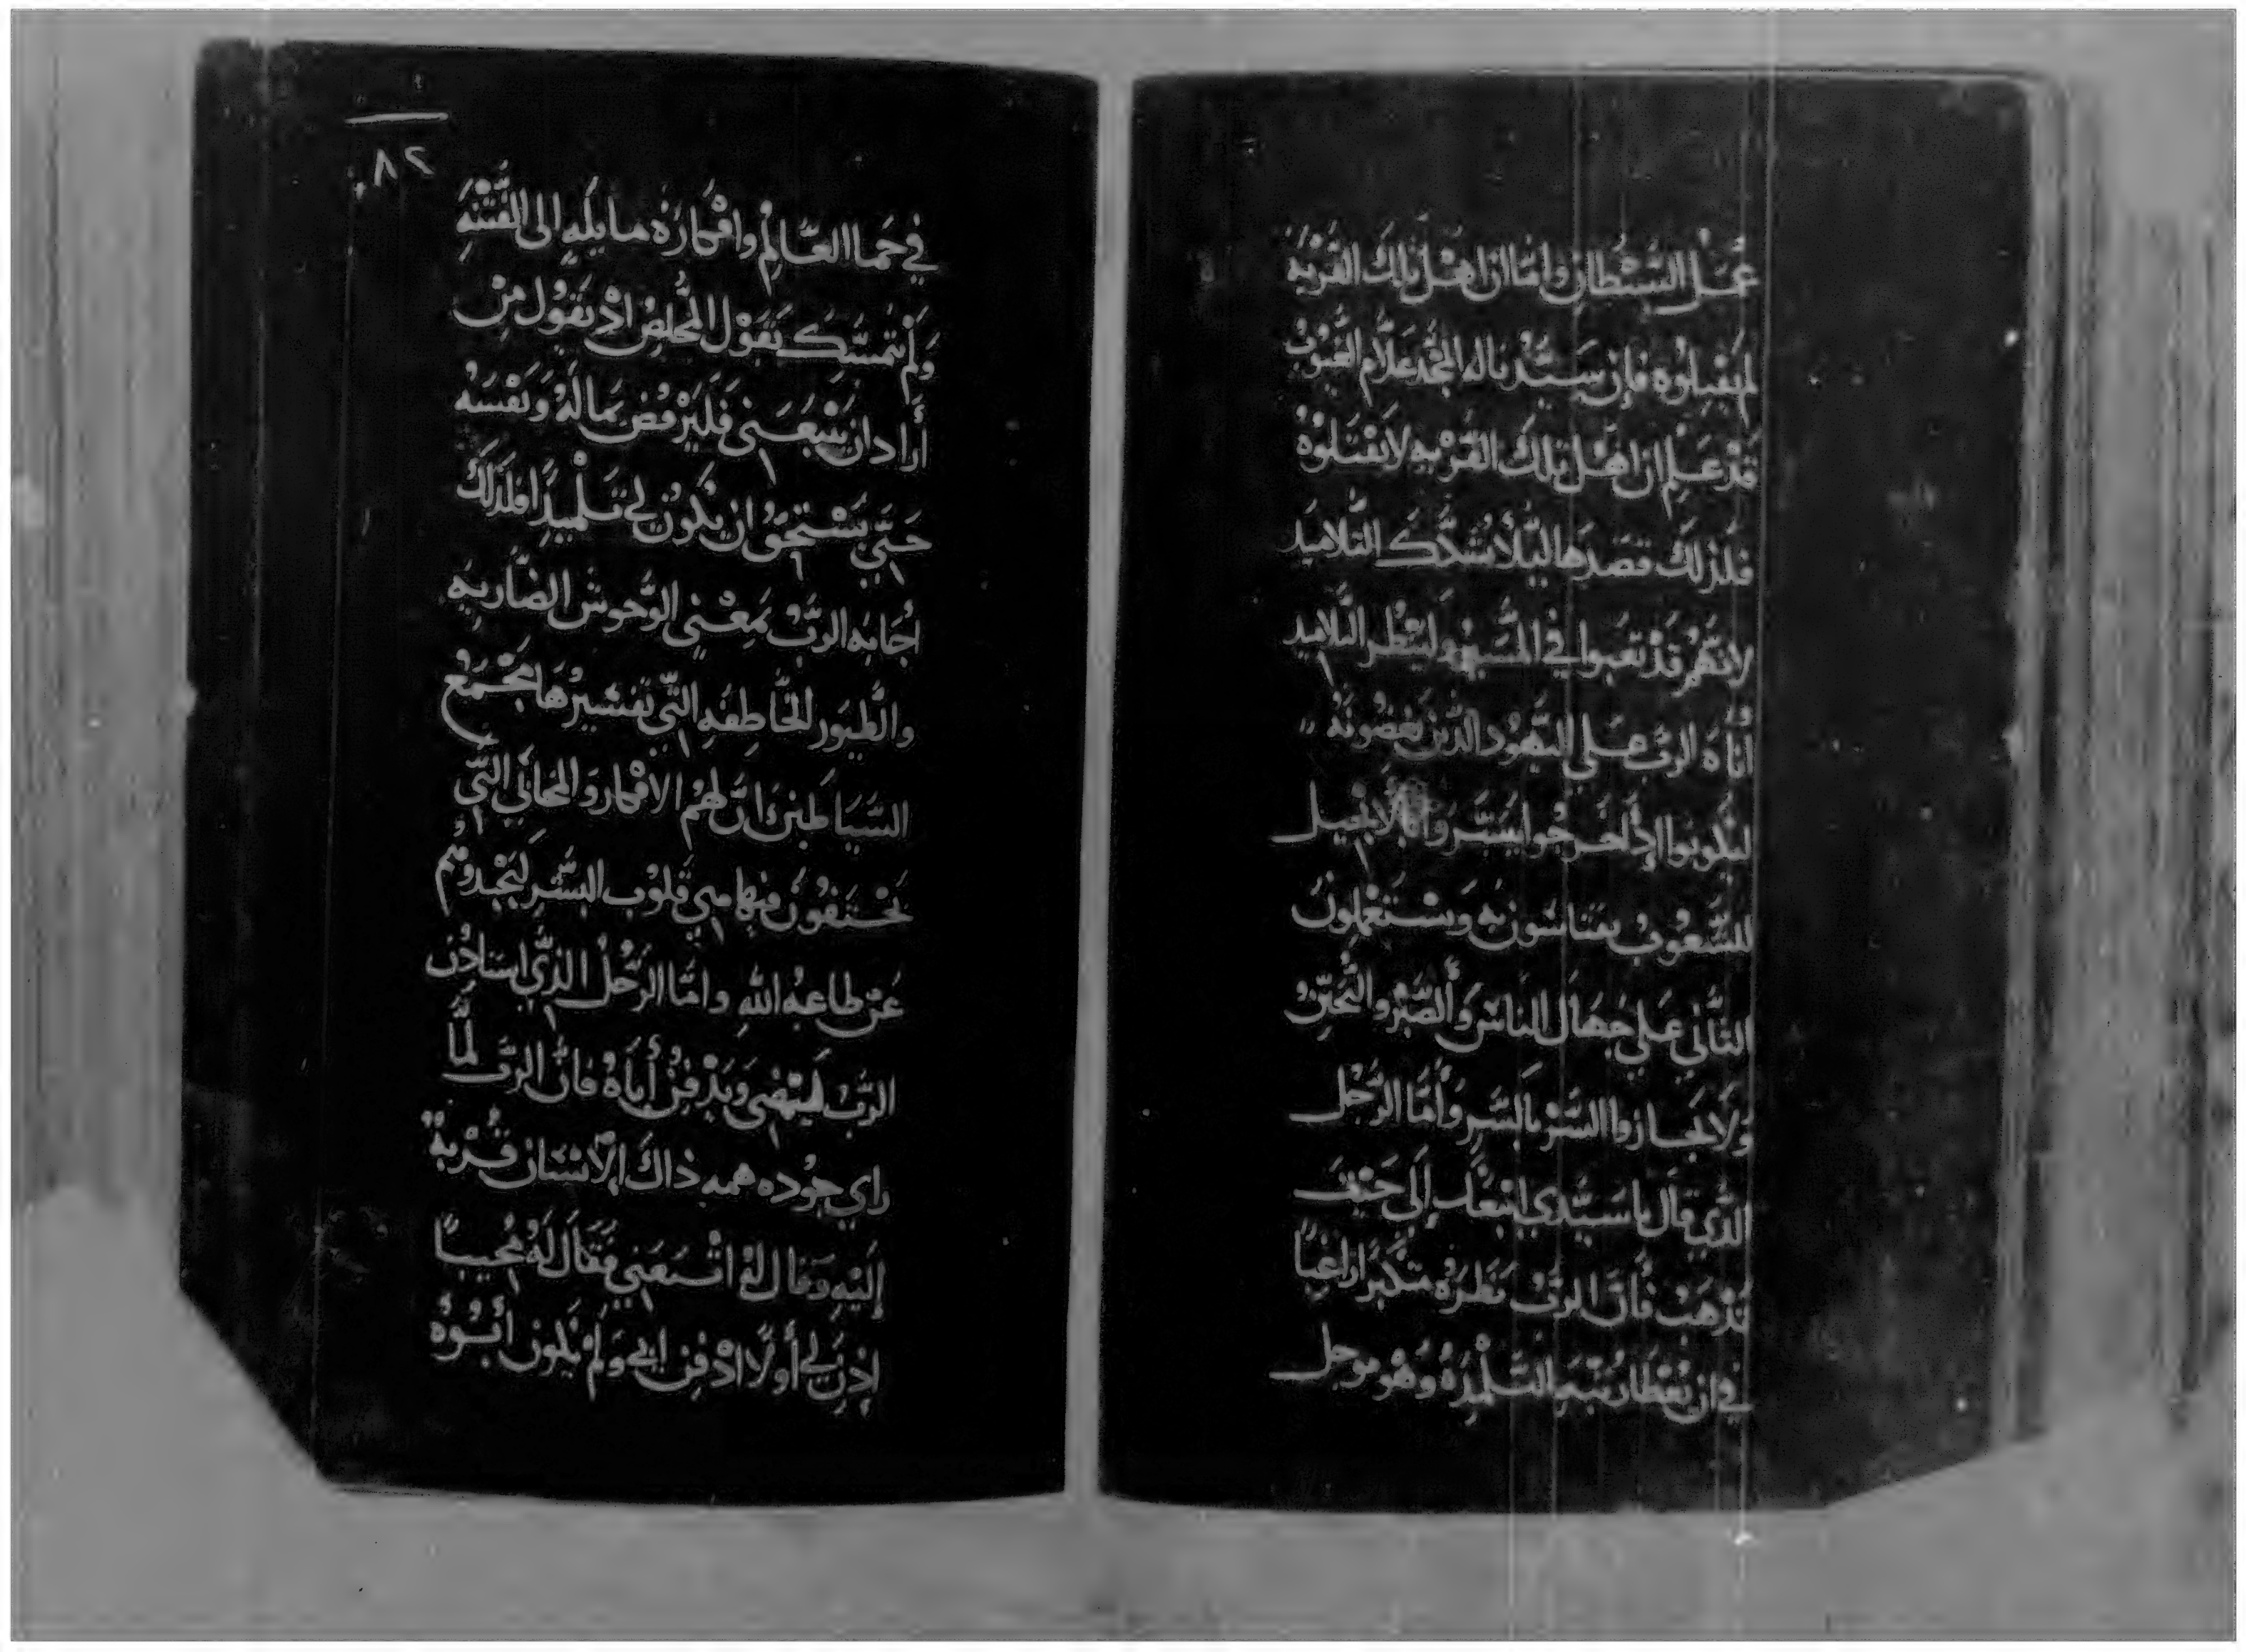 عَمَل السَّيْطان وامّا ان اهْل تلك القَرْيه
لم يَقبلوه فان سَيّدنا له المجْد عَلاّم الغُيوُب
قَدْ عَلِم ان اهْل تلك القَرْيه لا يَقْبَلوْه
فلذلكَ قصَدَها ليَلاّ يشُكّكَ التَّلاميد
لانهُّم قدْ تعَبوا في المَسير ولينظر التَّلاميد
اناهَ الربّ عَلى اليَهُود الدّين يبغضُونَهُ
ليكونوا اذا خرجُوا يبَشّروا بالانجيل
للشُعُوب يتناسُون به ويسْتعملون
التَّاني عَلي جهَال الناسْ وَالصَبْر والتحنن
وَلا يجازوا السَّرْ بالسَّر وَأمَّا الرَّجُل
الدَّي قال يا سَيّدي اتبعَك إلَى حَيْث
تَذهَب فأنَّ الربّ نَظرَهُ متكبَرًا راغبًا
في ان يعْطا رتبَه التَّلْمِذهْ وَهُو موجل
٨٢
في حَمَا العَالِمْ وافْكارَهْ ما يُلهِ الى الفتنه
وَلم يتمَسَّك بقَوْل المُخلِصْ ادْ يَقوُل مَنْ
أرَاد ان يتْبَعَنى فَليَرْفض مَالهُ وَنَفْسَهُ
حَتّي يَسْتحَق ان يكُون لي تَلْميدًا فلدَلكَ
اجَابه الربّ بمعْني الوُحوش الضّاريه
والطُيَور الخَاطِفهِ التّي تفسَيرُها مَجْمَعْ
السَّيَاطين انّ لهُم الافْكار وَالمخابي التّي
يَختَفُون فيها مِن قلوُب البَشَر ليَجْدوُهم
عَن طاعهُ اللهِ وامّا الرَجُل الذّي استادن
الربّ ليَمْضى وَيَدْفِنُ أباهُ فانّ الربّ لمَّا
راي جوُده همه ذاكَ الاِنسَان قَرْبهُ
إليْهِ وَقال لهُ اتْبعَني فقَال لهُ مجُيبًا
إدن لِي أولاً ادْفن ابي وَلم يَكون أبُوُه